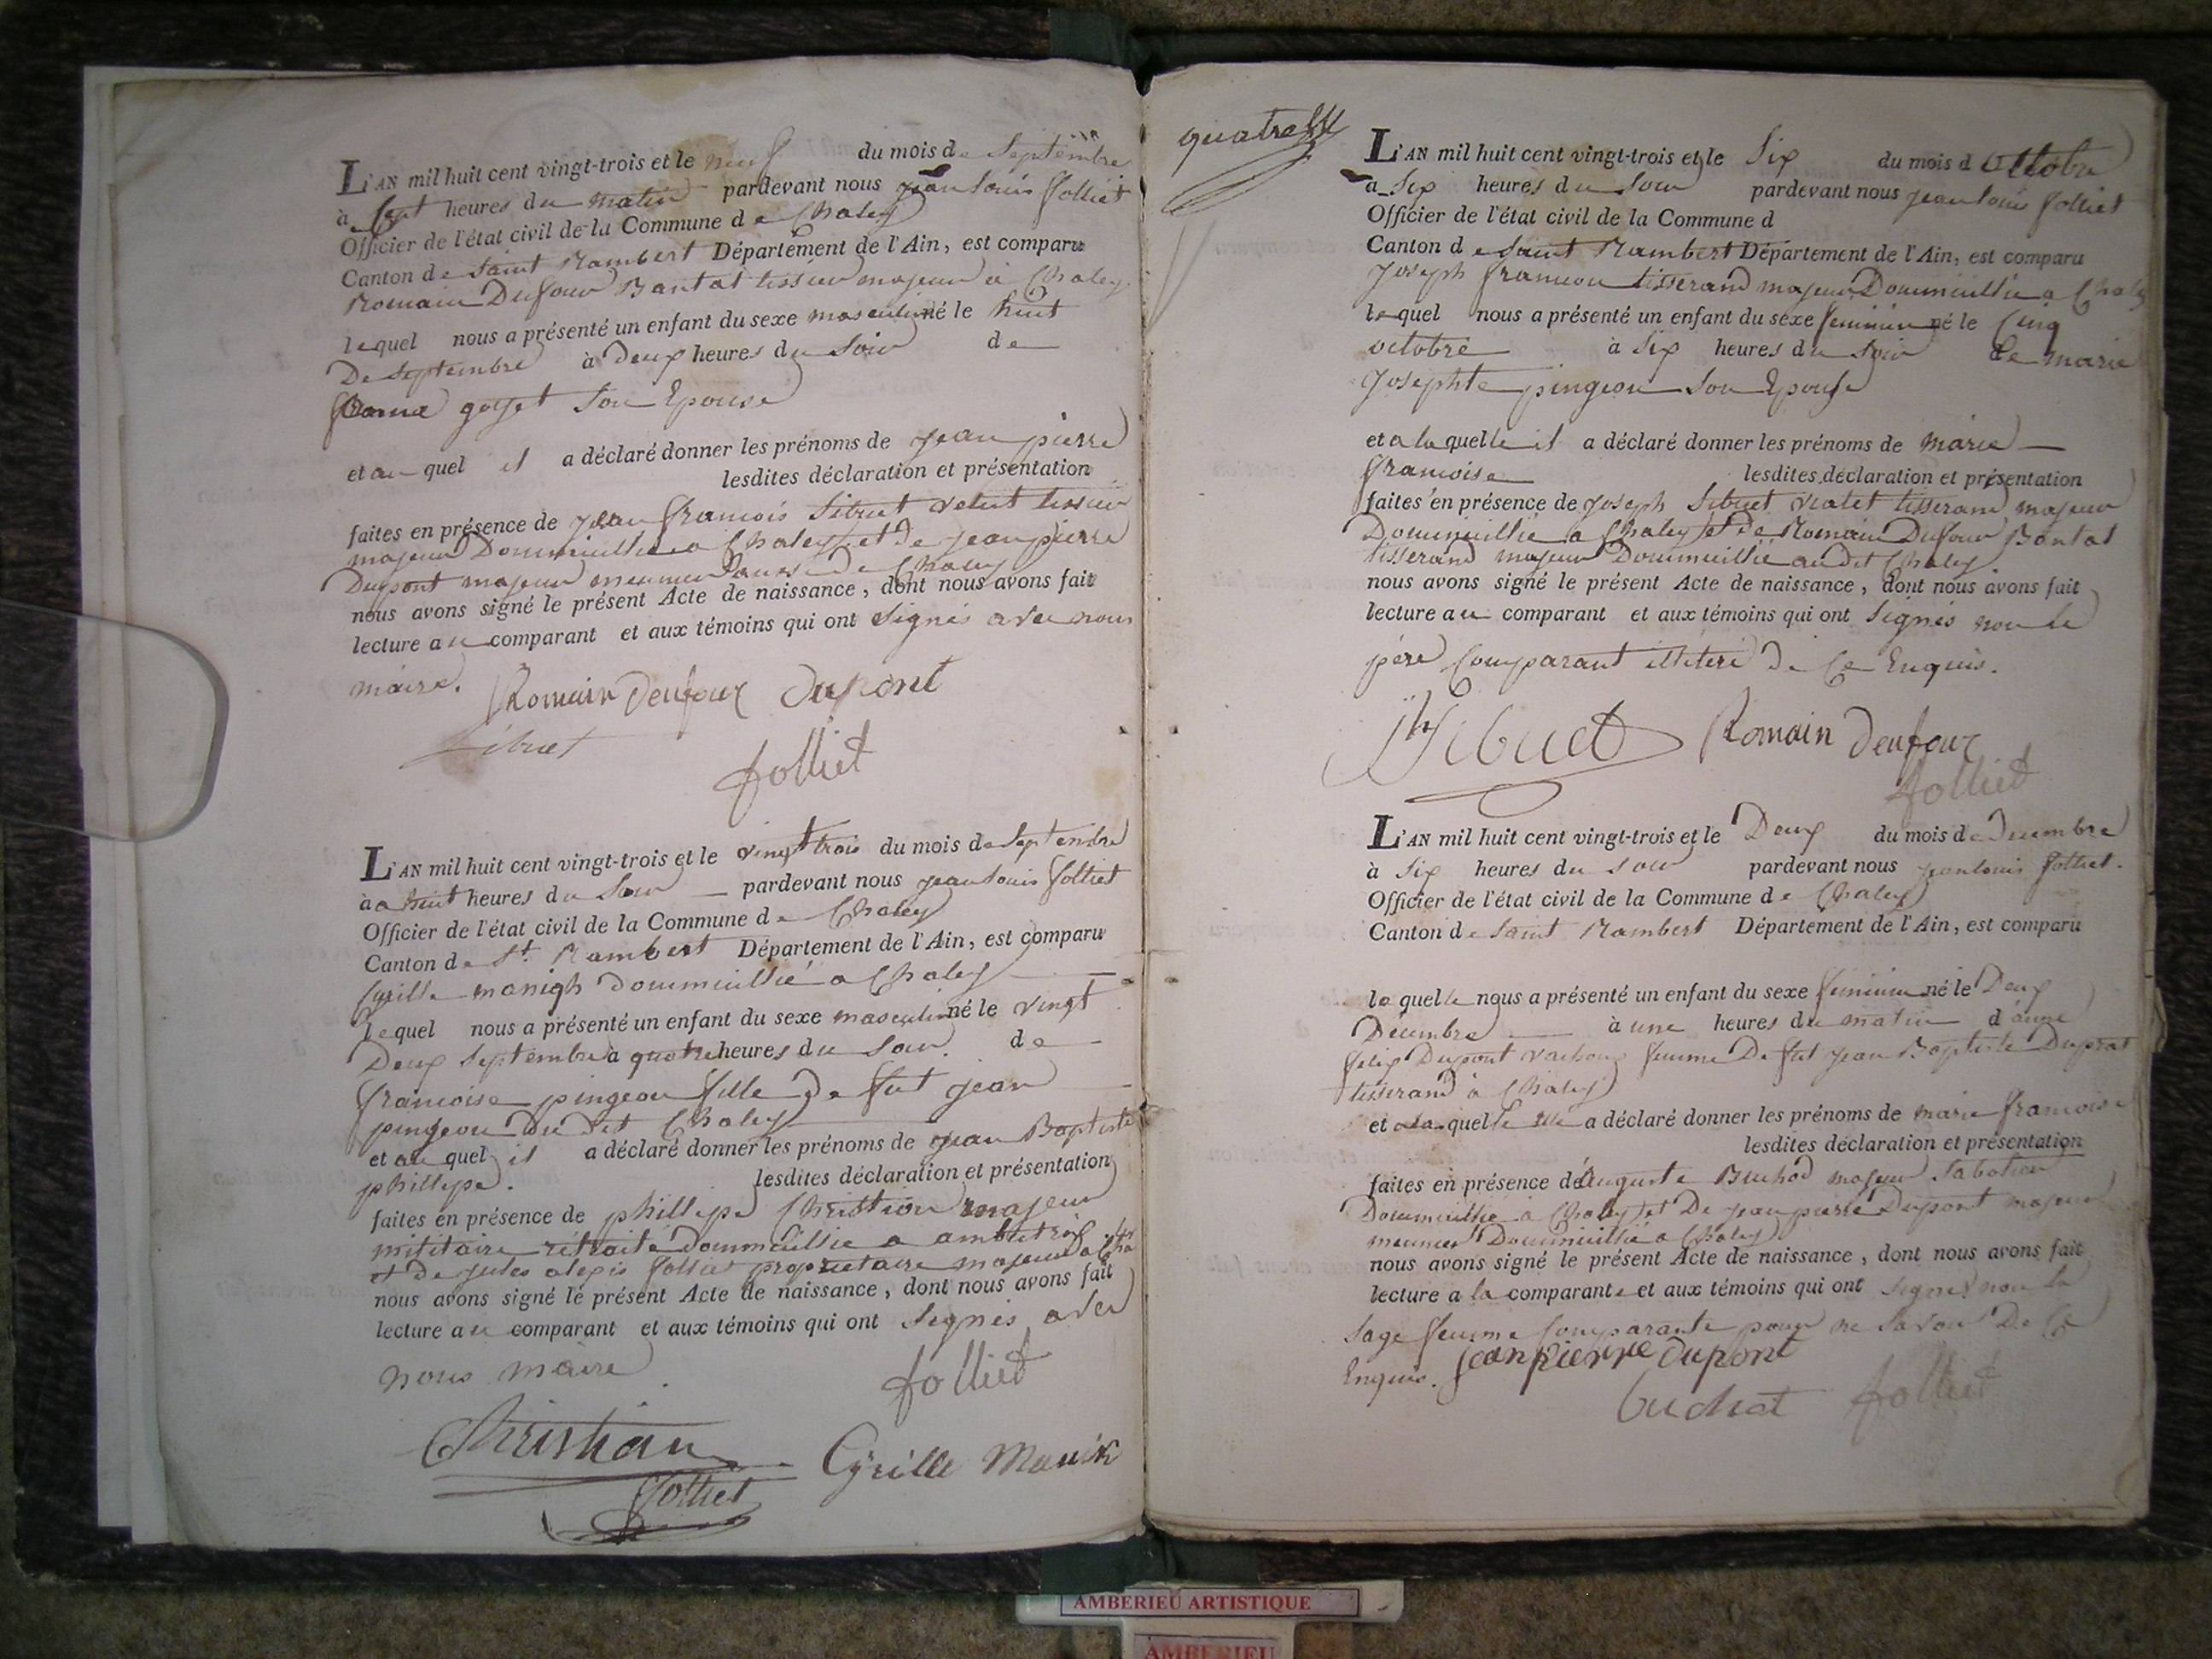 L'AN mil huit cent vingt-trois et le neuf du mois de Septembre
à Sept heures du matin pardevant nous jean Louis folliet
Officier de l'état civil de la Commune de Chaley
Canton de Saint Rambert Département de l'Ain, est comparu
Romain Dufour Bantat tissier majeur à Chaley
lequel nous a présenté un enfant du sexe masculin né le huit
De Septembre à Deux heures du Soir de
goyet Son Epouse
et au quel il a déclaré donner les prénoms de jean pierre
lesdites déclaration et présentation
faites en présence de jean francois Sibuet velut tissier
majeur Dommicillie a Chaley et de jean pierre
Dupont majeur meunier de Chaley
nous avons signé le présent Acte de naissance, dont nous avons fait
lecture au comparant et aux témoins qui ont Signés avec nous
maire. Romain Deufour Dupont
Sibuet
folliet
L'AN mil huit cent vingt-trois et le vingt trois du mois de Septembre
à a huit heures du Soir pardevant nous jean Louis folliet
Officier de l'état civil de la Commune de Chaley
Canton de St. Rambert Département de l'Ain, est comparu
Cyrille manigh Dommicillié a Chaley
lequel nous a présenté un enfant du sexe masculin né le vingt
Deux Septembre à quatre heures du Soir. de
francoise pingeon fille de fut jean
pingeon du dit Chaley
et au quel il a déclaré donner les prénoms de jean Baptiste
phillipe. lesdites déclaration et présentation
faites en présence de phillipe Christian majeur
militaire rétraité Dommicillie a
et De jules alexis folliet propriétaire majeur a
nous avons signé le présent Acte de naissance, dont nous avons fait
lecture au comparant et aux témoins qui ont Signés avec
nous maire folliet
Christian Cyrille Manik
folliet
quatre
L'AN mil huit cent vingt-trois et le Six du mois d Octobre
à Six heures du Soir pardevant nous jean louis folliet
Officier de l'état civil de la Commune d
Canton de Saint Rambert Département de l'Ain, est comparu
Joseph francon tisserand majeur Dommicillie a Chaley
lequel nous a présenté un enfant du sexe feminin né le Cinq
octobre à Six heures du Soir de marie
Josephte pingeon Son Epouse
et a la quelle il a déclaré donner les prénoms de marie
francoise lesdites déclaration et présentation
faites en présence de joseph Sibuet vialet tisserand majeur
Dommicillie a Chaley et de Romain Dufour Bantat
tisserand majeur Dommicillie au dit Chaley
nous avons signé le présent Acte de naissance, dont nous avons fait
lecture au comparant et aux témoins qui ont Signés non le
père Comparant illiteré De Ce Enquis.
Jh Sibuet Romain Deufour
folliet
L'AN mil huit cent vingt-trois et le Deux du mois de Decembre
à Six heures du Soir pardevant nous jean louis folliet.
Officier de l'état civil de la Commune de Chaley
Canton de Saint Rambert Département de l'Ain, est comparu
la quelle nous a présenté un enfant du sexe feminin né le Deux
Decembre à une heures du matin d'anne
felix Dupont femme De fut jean Baptiste Duprat
tisserand à Chaley
et a la quelle elle a déclaré donner les prénoms de marie francoise
lesdites déclaration et présentation
faites en présence de Auguste Buchod majeur Sabotier
Dommicillie à Chaley et De jean pierre Dupont majeur
meunier Dommicillie a Chaley
nous avons signé le présent Acte de naissance, dont nous avons fait
lecture a la comparante et aux témoins qui ont Signés non la
Sage femme Comparante pour ne Savoir De Ce
Enquis. jean pierre Dupont
buchat folliet
AMBERIEU ARTISTIQUE
AMBERIEU